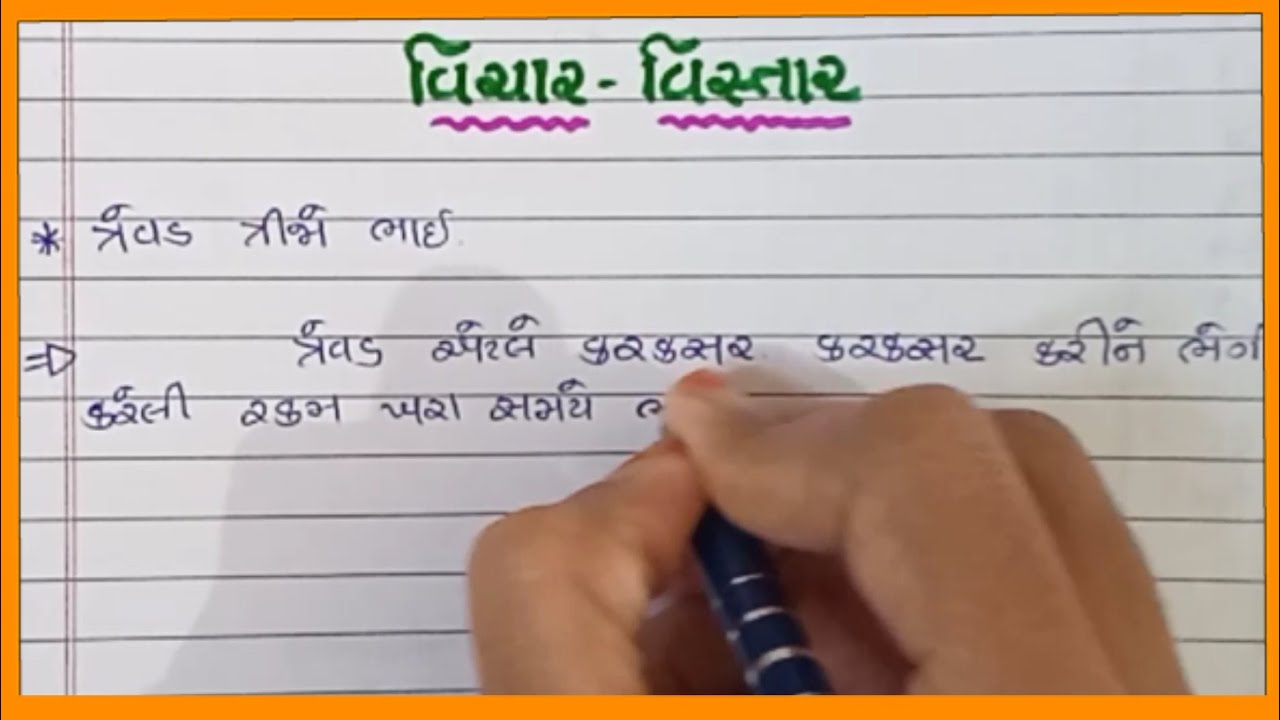 વિચાર - વિસ્તાર
* ત્રેવડ ત્રીજો ભાઈ.
⇒ ત્રેવડ એટલે કરકસર. કરકસર કરીને
કરેલી રકમ ખરા સમયે